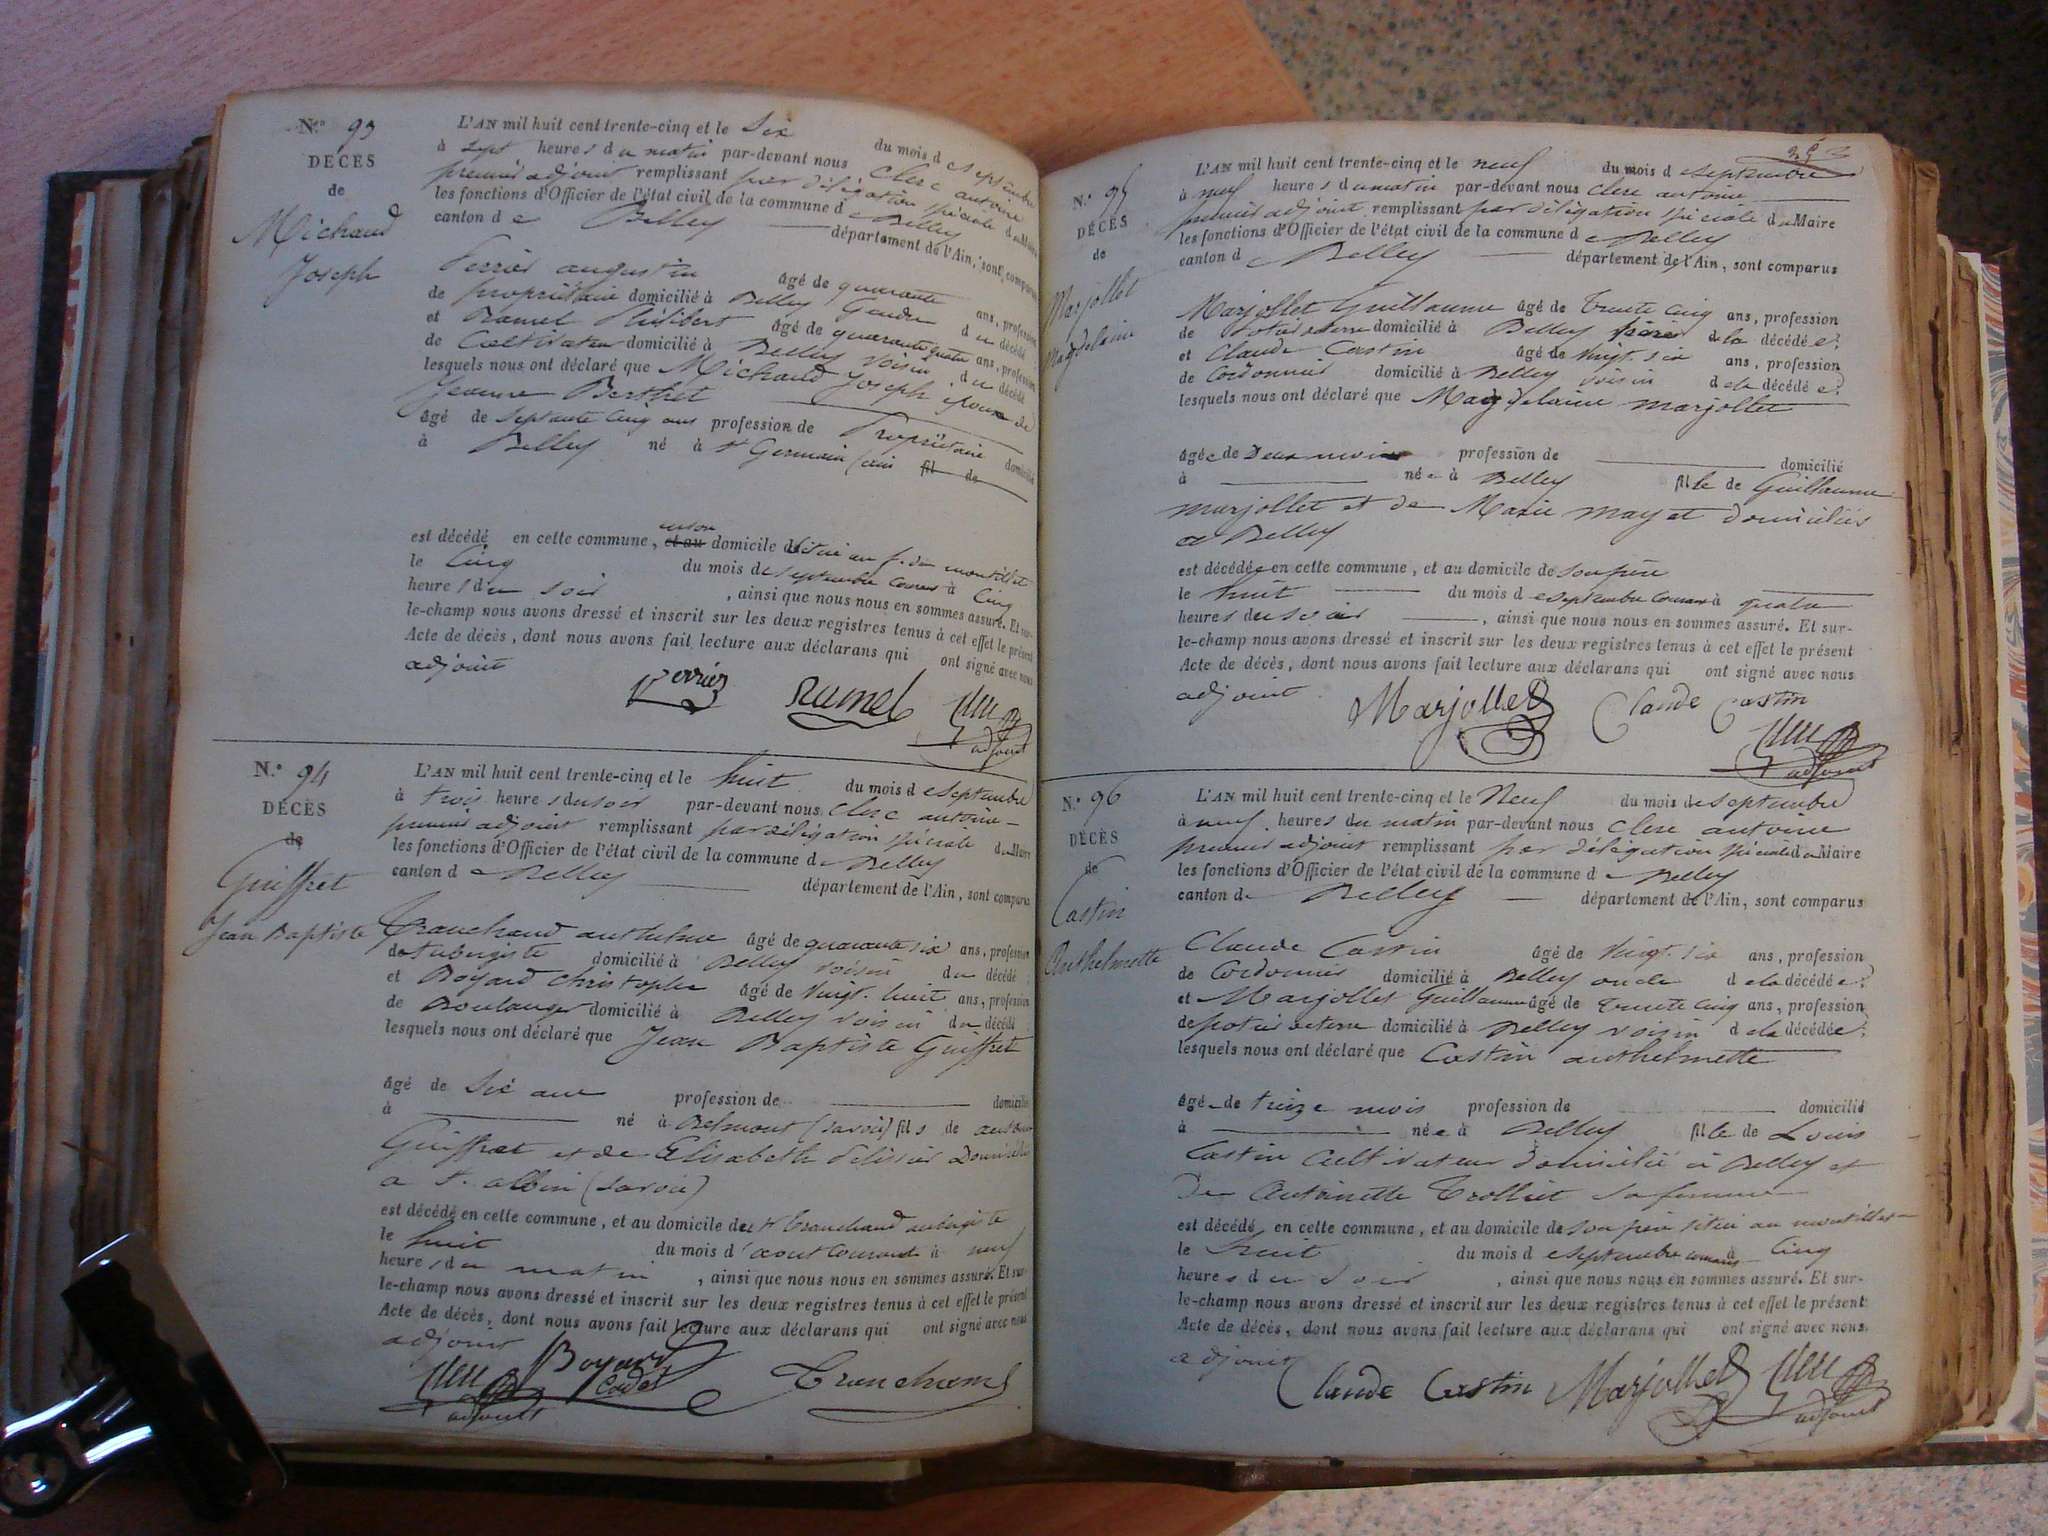 N.° 93
DÉCÈS
de
Michaud
Joseph
L'AN mil huit cent trente-cinq et le Six du mois de septembre
à sept heures du matin par-devant nous Clerc antoine
premier adjoint remplissant par délégation spéciale du Maire
les fonctions d'Officier de l'état civil de la commune de Belley
canton de Belley département de l'Ain, sont comparus
Perrier augustin âgé de quarante ans, profession
de propriétaire domicilié à Belley Gendre du décédé
et Ramel Philibert âgé de quarante quatre ans, profession
de Cultivateur domicilié à Belley voisin du décédé
lesquels nous ont déclaré que Michaud Joseph époux de
Jeanne Berthet
âgé de septante cinq ans profession de Propriétaire domicilié
à Belley né à st Germain (ain fil de
est décédé en cette commune, en son et au domicile situé au f. du montillet
le Cinq du mois de septembre courant à Cinq
heures du soir, ainsi que nous nous en sommes assuré. Et sur-
le-champ nous avons dressé et inscrit sur les deux registres tenus à cet effet le présent
Acte de décès, dont nous avons fait lecture aux déclarans qui ont signé avec nous
adjoint
Perrier Ramel
adjoint
N.° 94
DÉCÈS
de
Guiffret
Jean Baptiste
L'AN mil huit cent trente-cinq et le huit du mois de septembre
à trois heures du soir par-devant nous Clerc antoine
premier adjoint remplissant par délégation spéciale du Maire
les fonctions d'Officier de l'état civil de la commune de Belley
canton de Belley département de l'Ain, sont comparus
Tranchand anthelme âgé de quarante six ans, profession
de aubergiste domicilié à Belley voisin du décédé
et Boyard Christophe âgé de vingt-huit ans, profession
de Boulanger domicilié à Belley voisin du décédé
lesquels nous ont déclaré que Jean Baptiste Guiffret
âgé de Six ans profession de domicilié
à né à Belmont (savoie) fils de antoine
Guiffret et de Elisabeth Pelissier Domiciliés
a st. albin (savoie)
est décédé en cette commune, et au domicile de sr Tranchand aubergiste
le huit du mois d'aout courant à neuf
heures du matin, ainsi que nous nous en sommes assuré. Et sur-
le-champ nous avons dressé et inscrit sur les deux registres tenus à cet effet le présent
Acte de décès, dont nous avons fait lecture aux déclarans qui ont signé avec nous
adjoint
Boyard Tranchand
Cadet
adjoint
N.° 95
DÉCÈS
de
Marjollet
Magdelaine
L'AN mil huit cent trente-cinq et le neuf du mois de septembre
à neuf heures du matin par-devant nous Clerc antoine
premier adjoint remplissant par délégation spéciale du Maire
les fonctions d'Officier de l'état civil de la commune de Belley
canton de Belley département de l'Ain, sont comparus
Marjollet Guillaume âgé de Trente Cinq ans, profession
de Potier de terre domicilié à Belley père de la décédée
et Claude Castin âgé de vingt-six ans, profession
de Cordonnier domicilié à Belley voisin de la décédée
lesquels nous ont déclaré que Magdelaine marjollet
âgée de Deux mois profession de domicilié
à née à Belley fille de Guillaume
marjollet et de Marie mayet domiciliés
a Belley
est décédée en cette commune, et au domicile de son père
le huit du mois de septembre courant à quatre
heures du soir, ainsi que nous nous en sommes assuré. Et sur-
le-champ nous avons dressé et inscrit sur les deux registres tenus à cet effet le présent
Acte de décès, dont nous avons fait lecture aux déclarans qui ont signé avec nous
adjoint
Marjollet Claude Castin
adjoint
N.° 96
DÉCÈS
de
Castin
Anthelmette
L'AN mil huit cent trente-cinq et le Neuf du mois de septembre
à neuf heures du matin par-devant nous Clerc antoine
premier adjoint remplissant par délégation spéciale du Maire
les fonctions d'Officier de l'état civil de la commune de Belley
canton de Belley département de l'Ain, sont comparus
Claude Castin âgé de vingt-six ans, profession
de Cordonnier domicilié à Belley oncle de la décédée
et Marjollet Guillaume âgé de Trente Cinq ans, profession
de potier de terre domicilié à Belley voisin de la décédée
lesquels nous ont déclaré que Castin anthelmette
âgée de treize mois profession de domicilié
à née à Belley fille de Louis
Castin Cultivateur domicilié à Belley et
De Antoinette Trolliet sa femme
est décédé en cette commune, et au domicile de son père situé au montillet
le huit du mois de septembre courant à Cinq
heures du soir, ainsi que nous nous en sommes assuré. Et sur-
le-champ nous avons dressé et inscrit sur les deux registres tenus à cet effet le présent
Acte de décès, dont nous avons fait lecture aux déclarans qui ont signé avec nous
adjoint
Claude Castin Marjollet
adjoint